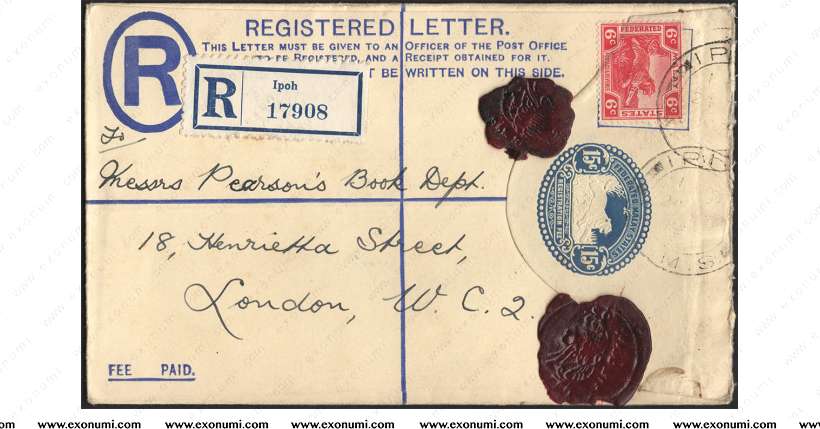 REGISTERED LETTER.
THIS LETTER MUST BE GIVEN TO AN OFFICER OF THE POST OFFICE
TO BE REGISTERED, AND A RECEIPT OBTAINED FOR IT.
T BE WRITTEN ON THIS SIDE.
R
R
Ipoh
17908
FEDERATED
6c
6c
STATES
IP
To
Messrs Pearson's Book Dept.
18, Henrietta Street,
London, W. C. 2.
15c
FEDERATED MALAY STATES
15c
FEE PAID.
www.exonumi.com www.exonumi.com www.exonumi.com www.exonumi.com www.exonumi.com